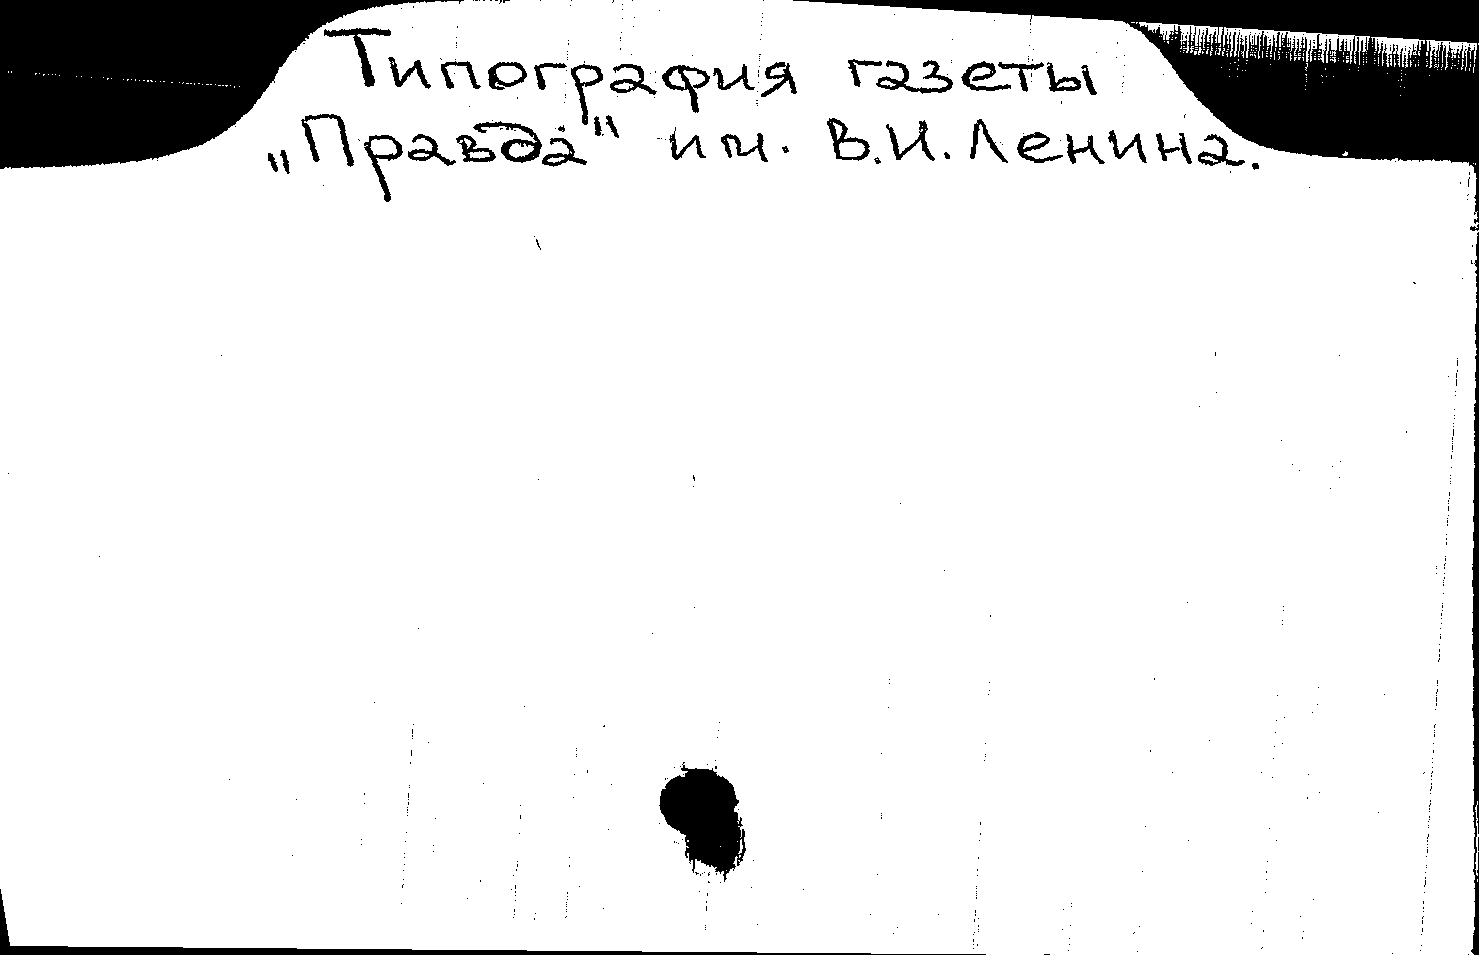 Типография газеты
„Правда" им. В.И. Ленина.